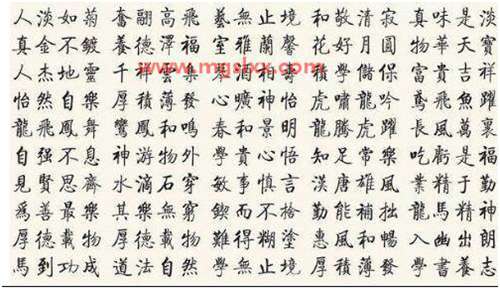 人淡如菊 奮翮高飛 藝無止境 和敬清寂 真味是淡
真金不鍍 養德澤福 室雅蘭馨 花好月圓 物華天寶
人杰地靈 千 雲集 心 積學儲 富貴吉祥
www.mgslxx.com
怡然自樂 厚積薄發 心曠神怡 虎嘯龍吟 鳶飛魚躍
龍飛鳳舞 鸞鳳和鳴 春和景明 龍騰虎躍 長風萬裏
自强不息 神游物外 學貴心悟 知足常樂 吃虧是福
見賢思齊 水滴石穿 敏事慎言 漢唐雄風 業精于勤
爲善最樂 其樂無窮 鍥而不捨 勤能補拙 龍馬精神
厚德載物 厚德載物 難得糊塗 惠風和暢 入幽出朗
馬到功成 道法自然 學無止境 厚積薄發 學書養志